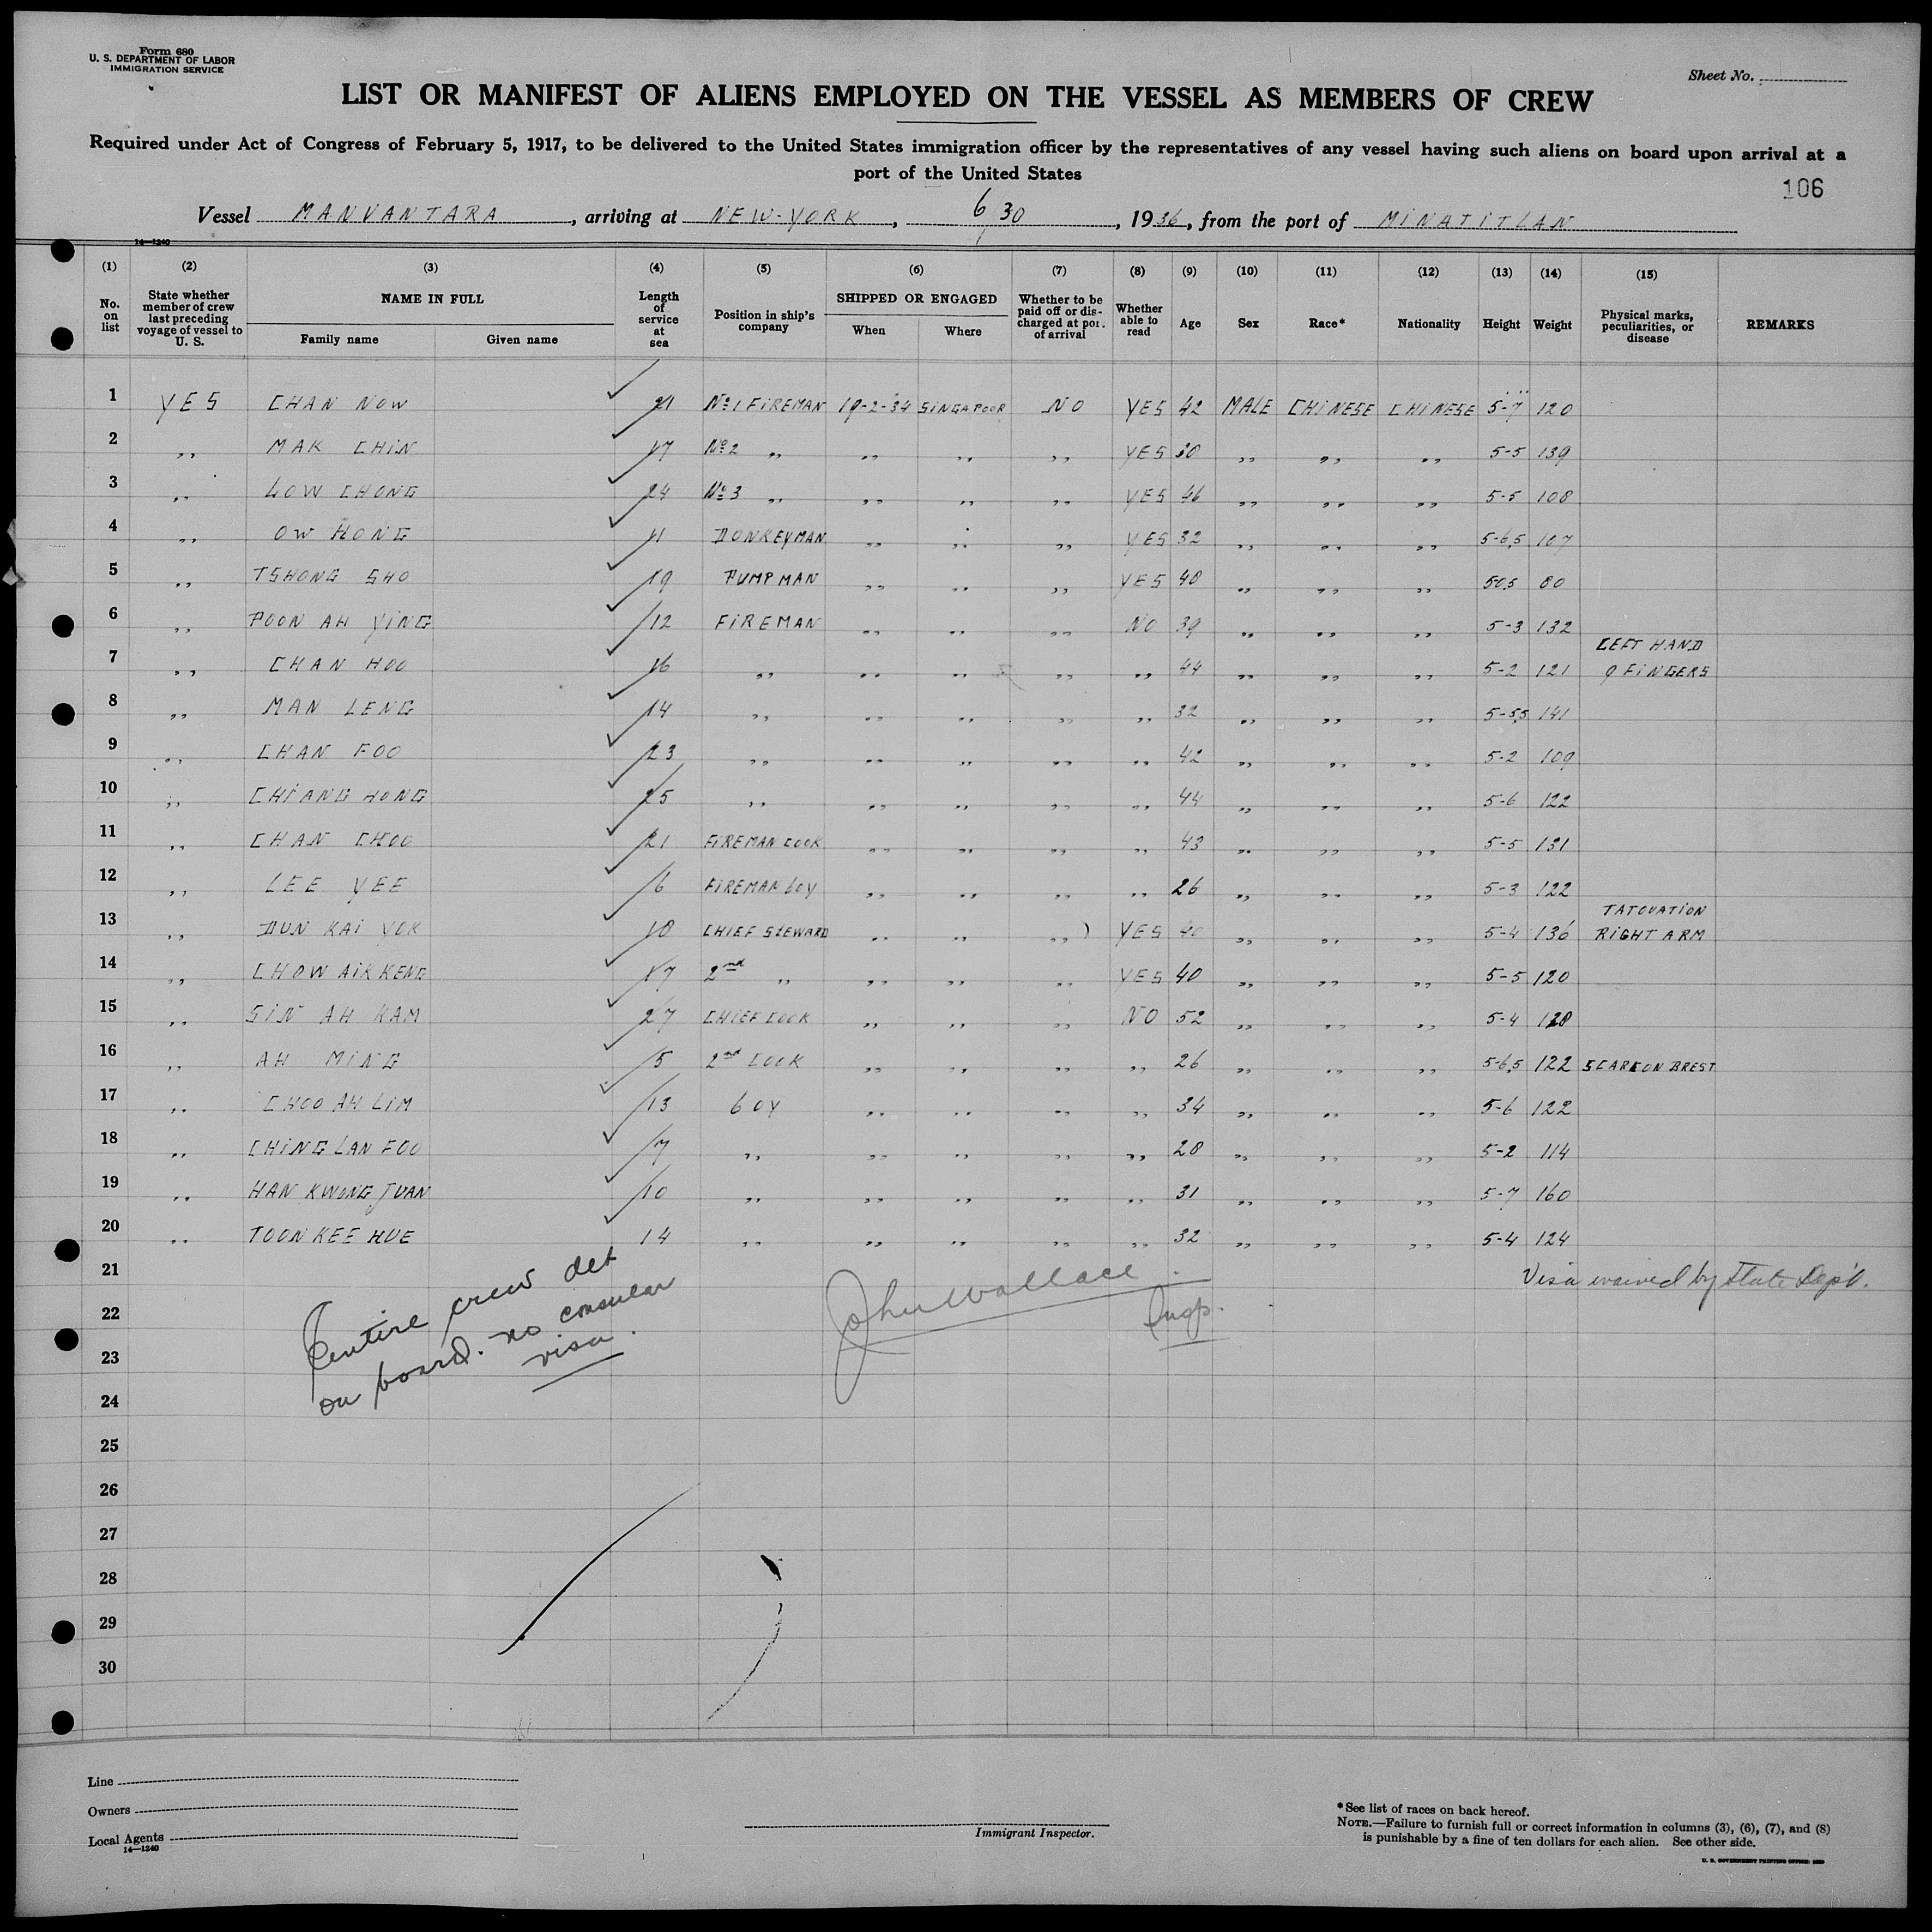 Form 680
U. S. DEPARTMENT OF LABOR
IMMIGRATION SERVICE
Sheet No.
LIST OR MANIFEST OF ALIENS EMPLOYED ON THE VESSEL AS MEMBERS OF CREW
Required under Act of Congress of February 5, 1917, to be delivered to the United States immigration officer by the representatives of any vessel having such aliens on board upon arrival at a
port of the United States
106
Vessel MANVANTARA, arriving at NEW-YORK, 6/30, 1936, from the port of MINATITLAN
14—1240
(1) (2) (3) (4) (5) (6) (7) (8) (9) (10) (11) (12) (13) (14) (15)
No. on list State whether member of crew last preceding voyage of vessel to U. S. NAME IN FULL Family name Given name Length of service at sea Position in ship's company SHIPPED OR ENGAGED When Where Whether to be paid off or discharged at port of arrival Whether able to read Age Sex Race* Nationality Height Weight Physical marks, peculiarities, or disease REMARKS
1 YES CHAN NOW 21 No 1 FIREMAN 19-2-34 SINGAPOOR NO YES 42 MALE CHINESE CHINESE 5-7 120
2 ,, MAK CHIN 17 No 2 ,, ,, ,, ,, YES 30 ,, ,, ,, 5-5 139
3 ,, LOW CHONG 24 No 3 ,, ,, ,, ,, YES 46 ,, ,, ,, 5-5 108
4 ,, OW HONG 11 DONKEYMAN ,, ,, ,, YES 32 ,, ,, ,, 5-6,5 107
5 ,, TSHONG SHO 19 PUMPMAN ,, ,, ,, YES 48 ,, ,, ,, 50,5 80
6 ,, POON AH YING 12 FIREMAN ,, ,, ,, NO 39 ,, ,, ,, 5-3 132
7 ,, CHAN HOO 16 ,, ,, ,, ,, ,, 44 ,, ,, ,, 5-2 121 LEFT HAND 9 FINGERS
8 ,, MAN LENG 14 ,, ,, ,, ,, ,, 32 ,, ,, ,, 5-5,5 141
9 ,, CHAN FOO 23 ,, ,, ,, ,, ,, 42 ,, ,, ,, 5-2 109
10 ,, CHIANG HONG 25 ,, ,, ,, ,, ,, 44 ,, ,, ,, 5-6 122
11 ,, CHAN CHOO 21 FIREMAN COOK ,, ,, ,, ,, 43 ,, ,, ,, 5-5 131
12 ,, LEE YEE 6 FIREMAN BOY ,, ,, ,, ,, 26 ,, ,, ,, 5-3 122
13 ,, DUN KAI YOK 10 CHIEF STEWARD ,, ,, ,, YES 40 ,, ,, ,, 5-4 136 TATOUATION RIGHT ARM
14 ,, CHOW AIK KENG 17 2nd ,, ,, ,, ,, YES 40 ,, ,, ,, 5-5 120
15 ,, SIN AH KAM 27 CHIEF COOK ,, ,, ,, NO 52 ,, ,, ,, 5-4 128
16 ,, AH MING 5 2nd COOK ,, ,, ,, ,, 26 ,, ,, ,, 5-6,5 122 SCARE ON BREST
17 ,, CHOO AH LIM 13 BOY ,, ,, ,, ,, 34 ,, ,, ,, 5-6 122
18 ,, CHING LAN FOO 7 ,, ,, ,, ,, ,, 28 ,, ,, ,, 5-2 114
19 ,, HAN KWONG JUAN 10 ,, ,, ,, ,, ,, 31 ,, ,, ,, 5-7 160
20 ,, TOON KEE HUE 14 ,, ,, ,, ,, ,, 32 ,, ,, ,, 5-4 124
21 Visa waived by State Dep't.
22
23
24
25
26
27
28
29
30
Entire crew det
on board. no consular
visa.
John Wallace
Insp.
Line
Owners
Local Agents
14—1240
Immigrant Inspector.
*See list of races on back hereof.
NOTE.—Failure to furnish full or correct information in columns (3), (6), (7), and (8)
is punishable by a fine of ten dollars for each alien. See other side.